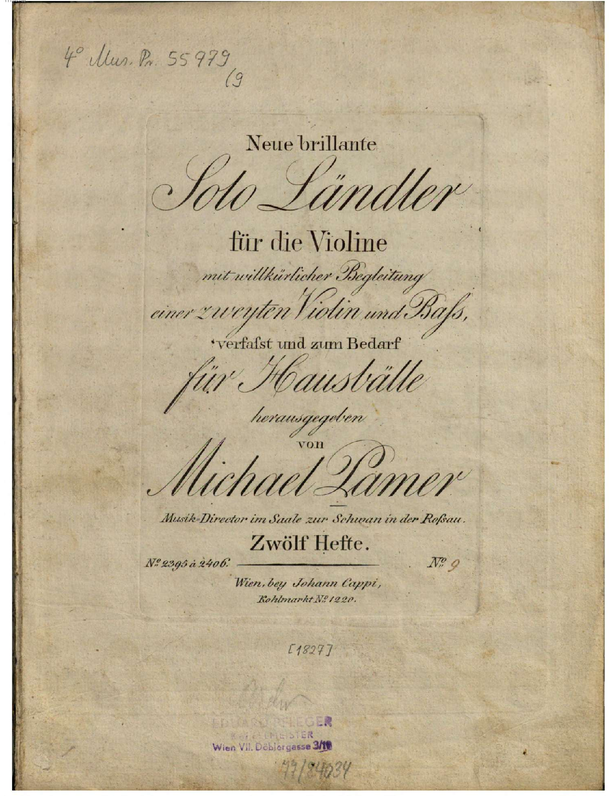 4° Mus. Pr. 55979
(9
Neue brillante
Solo Ländler
für die Violine
mit willkürlicher Begleitung
einer zweyten Violin und Baſs,
verfaſst und zum Bedarf
für Hausbälle
herausgegeben
von
Michael Pamer
Musik-Director im Saale zur Schwan in der Roſsau.
Zwölf Hefte.
No. 2395 à 2406. No. 9
Wien, bey Johann Cappi,
Kohlmarkt No. 1220.
[1827]
EDUARD PFLEGER
Wien VII. Döblergasse 3/19
77/84034